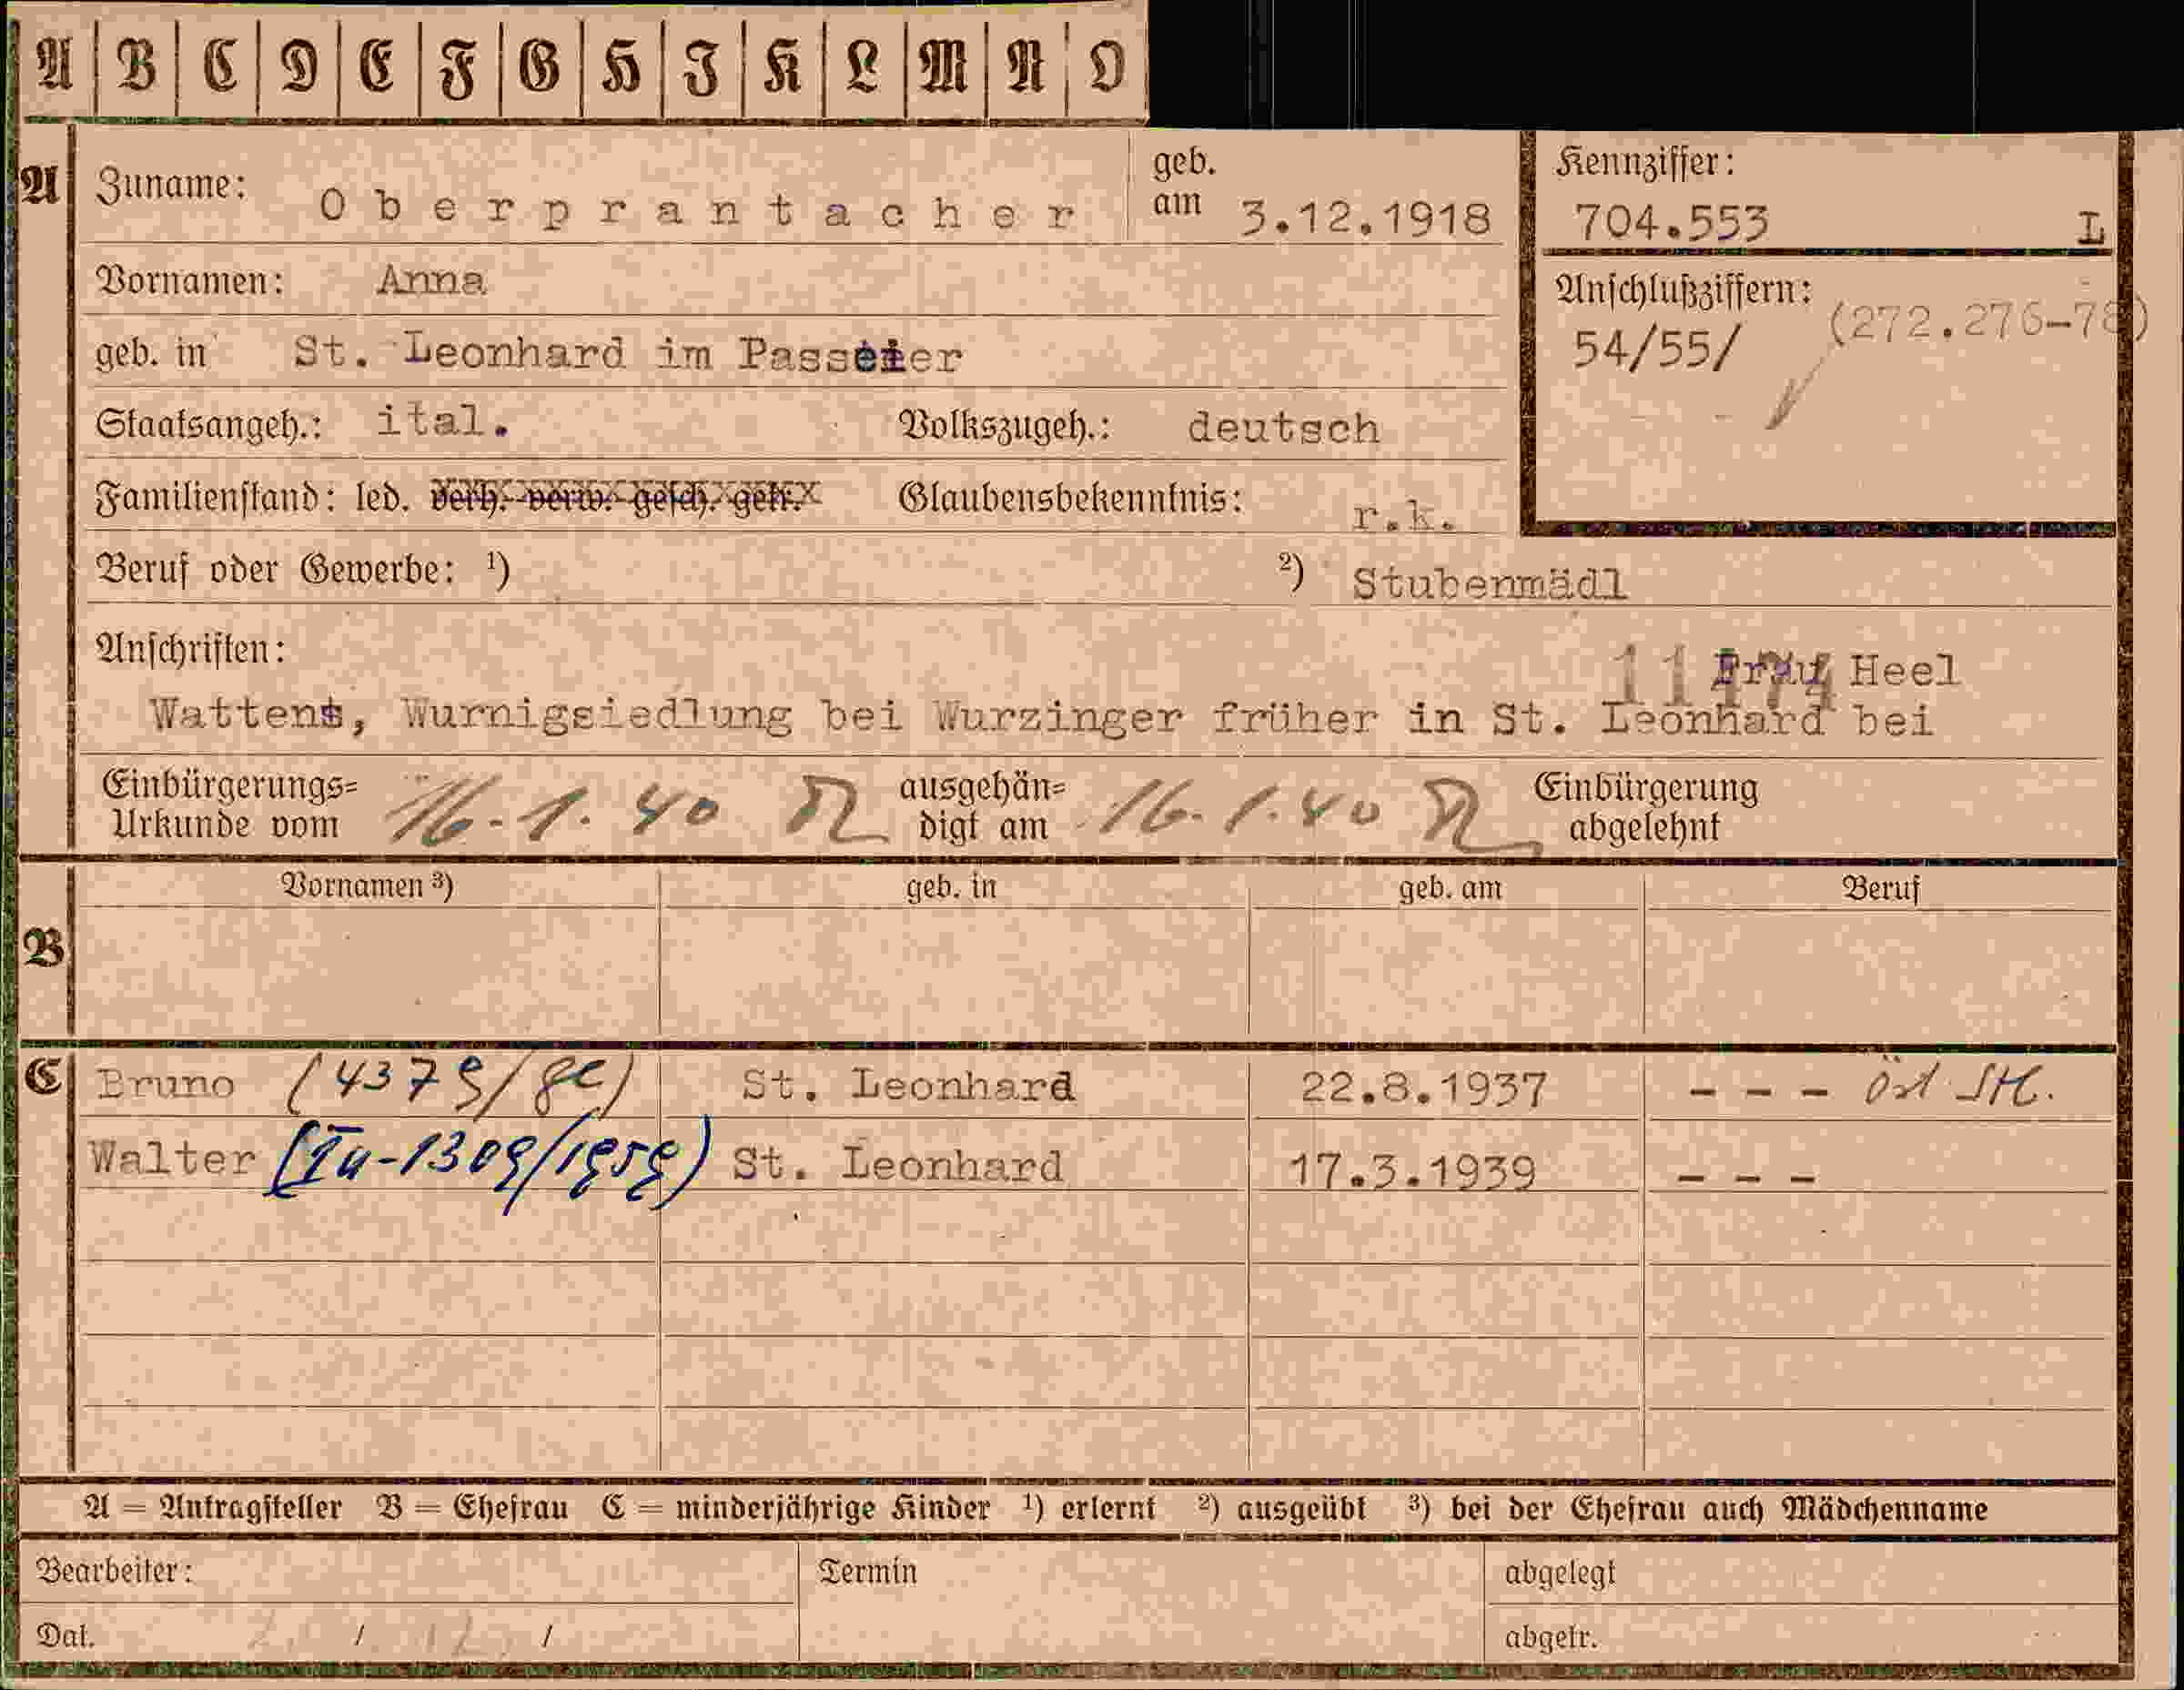 A B C D E F G H I K L M N O
A Zuname: Oberprantacher geb. am 3.12.1918 Kennziffer: 704.553 L
Vornamen: Anna Anschlußziffern: (272.276-78)
geb. in St. Leonhard im Passeier 54/55/
Staatsangeh.: ital. Volkszugeh.: deutsch
Familienstand: led. verh. verw. gesch. getr. Glaubensbekenntnis: r.k.
Beruf oder Gewerbe: 1) 2) Stubenmädl
Anschriften: Frau Heel
Wattens, Wurnigsiedlung bei Wurzinger früher in St. Leonhard bei
Einbürgerungs= Urkunde vom 16-1.40 ausgehän= digt am 16.1.40 Einbürgerung abgelehnt
Vornamen 3) geb. in geb. am Beruf
B
C Bruno St. Leonhard 22.8.1937 - - - öst
Walter (Ia-1309/1959) St. Leonhard 17.3.1939 - - -
A = Antragsteller B = Ehefrau C = minderjährige Kinder 1) erlernt 2) ausgeübt 3) bei der Ehefrau auch Mädchenname
Bearbeiter: Termin abgelegt
Dat. / / abgetr.